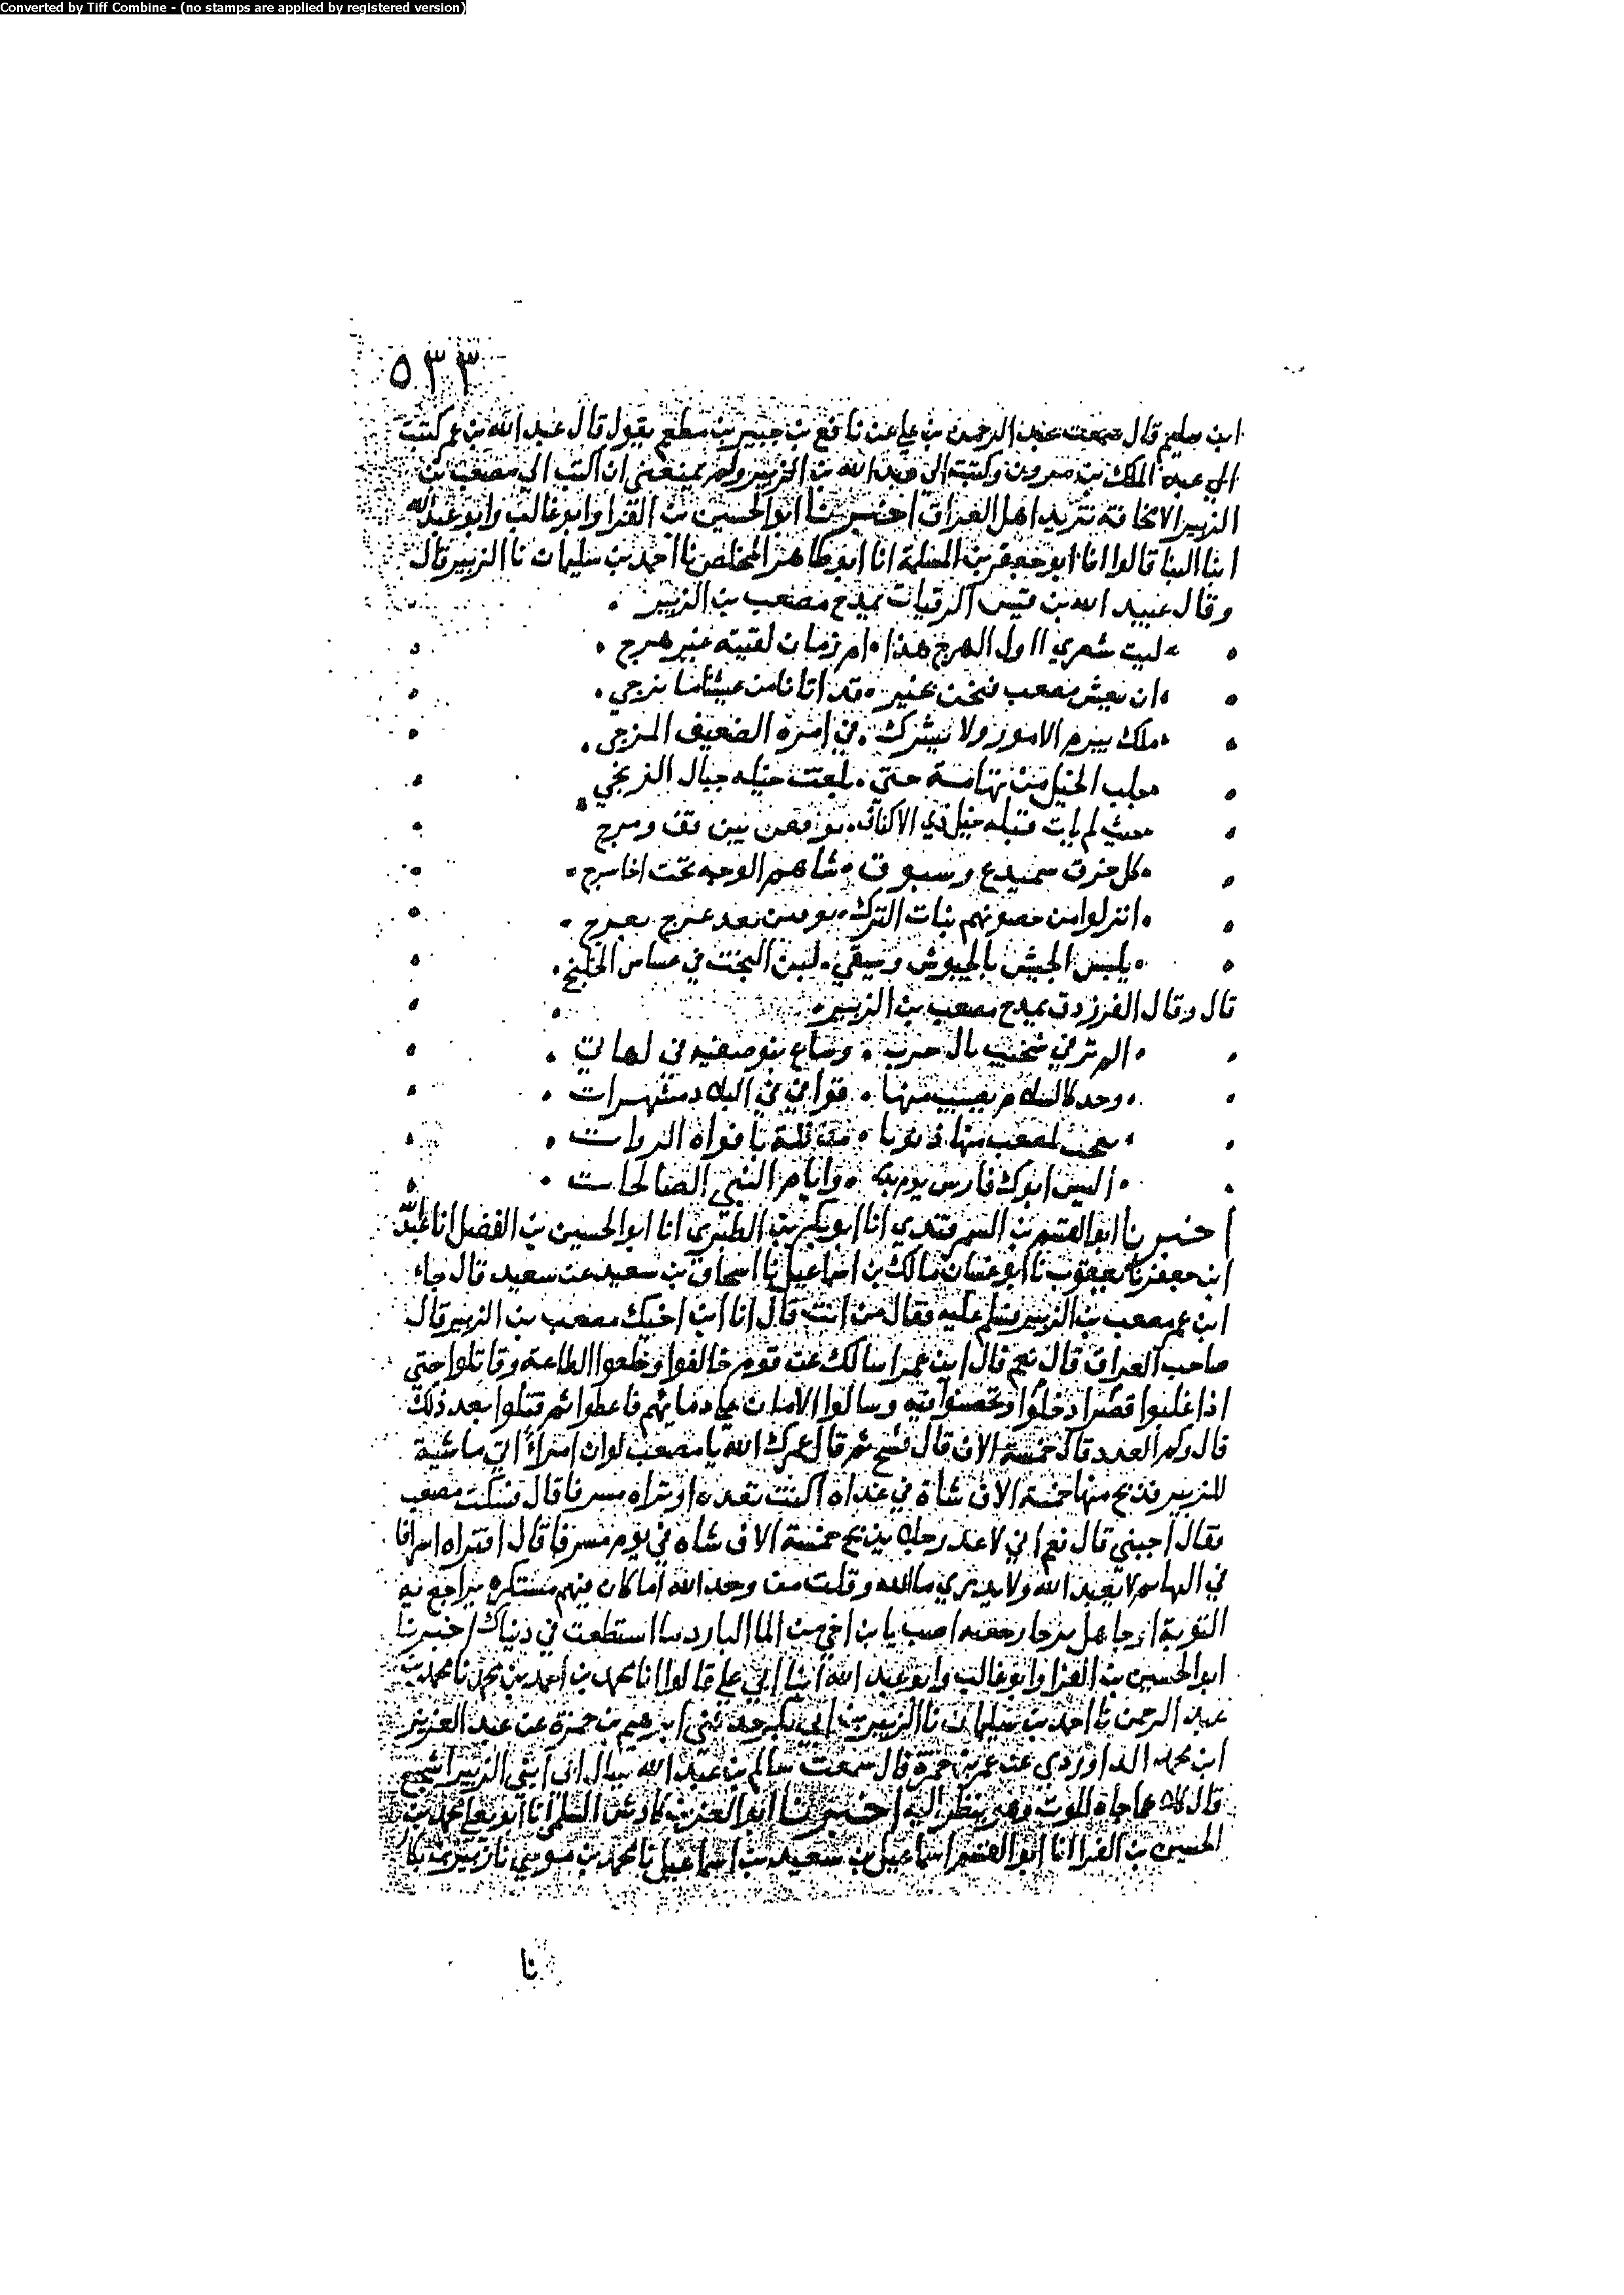 Converted by Tiff Combine - (no stamps are applied by registered version)
٥٣٣
ابن سليم قال سمعت عبد الرحمن بن علي عن نافع بن جبير بن مطعم يقول قال عبد الله بن عمر كتبت
الى عبد الملك بن مرون وكتبت الى عبد الله بن الزبير ولم يمنعني ان اكتب الى مصعب بن
الزبير الا مخافة تزيد اهل العراق اخبرنا ابو الحسين بن الفرا وابو غالب وابو عبد الله
ابنا البنا قالوا انا ابو جعفر بن المسلمة انا ابو طاهر المخلص نا احمد بن سليمان نا الزبير قال
وقال عبيد الله بن قيس الرقيات يمدح مصعب بن الزبير
ليت شعري ااول الهرج هذا ام زمان لقيته غير هرج
ان يعش مصعب فنحن بخير قد اتانا من عيشنا ما نرجي
ملك يبرم الامور ولا يشرك في امره الضعيف المزجى
جلب الخيل من تهامة حتى بلغت خيله جبال الزنجي
حيث لم يات قبله خيل ذي الاكتاف يوفضن بين قف ومرج
كل خرق سميدع وسبوق شاهم الوجه تحت احنا سرج
انزلوا من حصونهم بنات الترك يوفين بعد عرج بعرج
يلبس الجيش بالجيوش ويسقي لبن البخت في عساس الخلنج
قال وقال الفرزدق يمدح مصعب بن الزبير
الم ترني شخيت بال حرب وساع بنو صفيه في لهاتي
قوافي في البلاد مشهرات
لمصعب منها ذنوبا بافواه الروات
اليس ابوك فارس يوم بدر وايام النبي الصالحات
اخبرنا ابو القسم بن السمرقندي انا ابو بكر بن الطبري انا ابو الحسين بن الفضل انا عبد الله
ابن جعفر نا يعقوب نا ابو غسان مالك بن اسماعيل نا اسحاق بن سعيد عن سعيد قال جاء
ابن عمر مصعب بن الزبير فسلم عليه فقال من انت قال انا ابن اخيك مصعب بن الزبير قال
صاحب العراق قال نعم قال ابن عمر اسالك عن قوم خالفوا وخلعوا الطاعة وقاتلوا حتى
اذا غلبوا قصرا دخلوا وتحصنوا فيه وسالوا الامان على دمائهم فاعطوا ثم قتلوا بعد ذلك
قال وكم العدد قال خمسة الاف قال فسبح ثم قال عمرك الله يا مصعب لو ان امرأ اتى ماشية
للزبير فذبح منها خمسة الاف شاة في غداه اكنت تعده او تراه مسرفا قال فسكت مصعب
فقال اجبني قال نعم اني لاعد رجلا يذبح خمسة الاف شاه في يوم مسرفا قال افتراه اسرافا
في البهائم لا تعبد الله ولا تدري ما الله وقتلت من وحد الله اما كان فيهم مستكره يراجع به
التوبة او جاهل يرجا رجعته اصب يا بن اخي من الما البارد ما استطعت في دنياك اخبرنا
ابو الحسين بن الفرا وابو غالب وابو عبد الله ابنا ابي علي قالوا انا محمد بن احمد بن محمد نا محمد بن
عبد الرحمن نا احمد بن سليمان نا الزبير بن ابي بكر حدثني ابرهيم بن حمزة عن عبد العزيز
ابن محمد الداوردي عن عمر بن حمزة قال سمعت سالم بن عبد الله يسال اي ابني الزبير اشجع
قال كلاهما جاه الموت وهو ينظر اليه اخبرنا ابو العز بن كادش السلمي انا ابو يعلى محمد بن
الحسين بن الفرا انا ابو القسم اسماعيل بن سعيد بن اسماعيل نا محمد بن موسي نا زبير بن بكار
نا